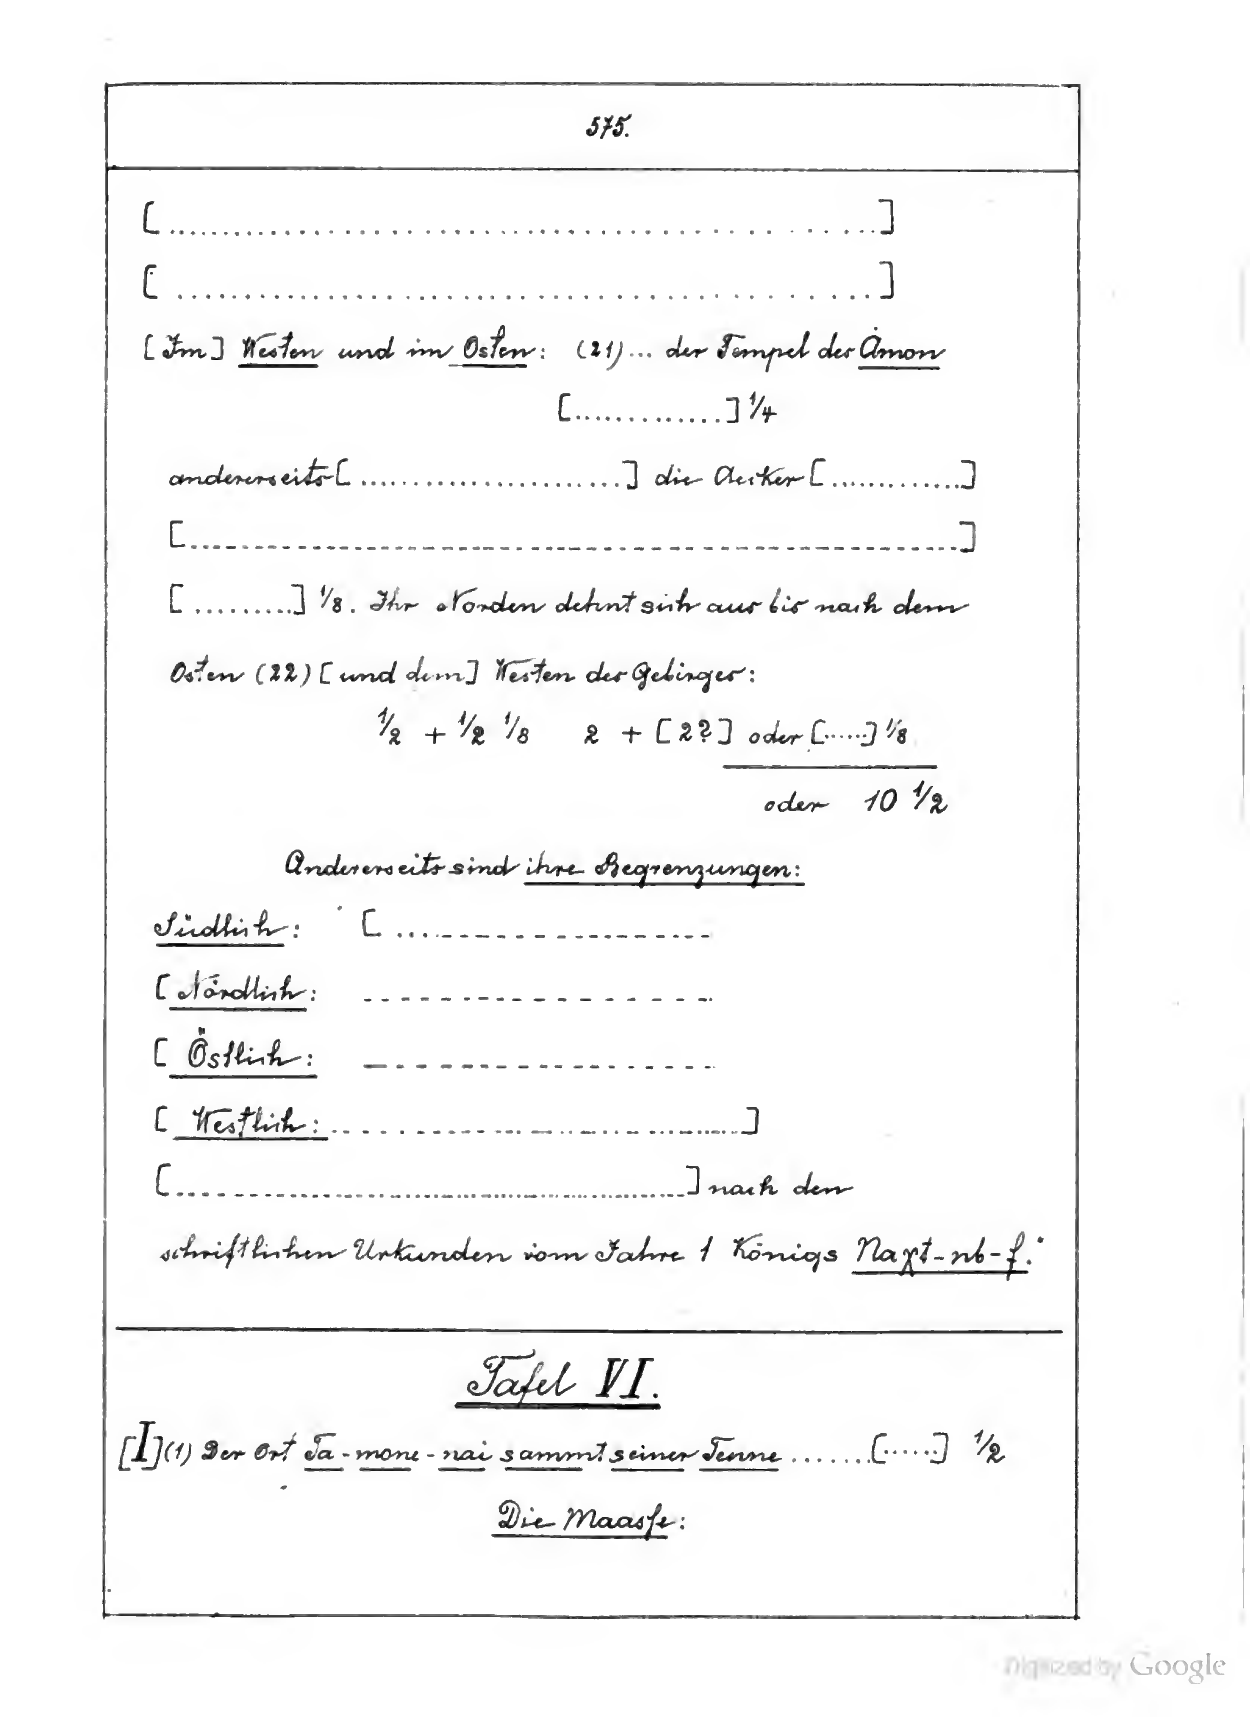 575.
[.............................................]
[.............................................]
[Im] Westen und im Osten: (21)... der Tempel des Amon
[.............] 1/4
andererseits [.......................] die Aecker [.............]
[.............................................]
[.........] 1/8. Ihr Norden dehnt sich aus bis nach dem
Osten (22) [und dem] Westen des Gebirges:
1/2 + 1/2 1/8 2 + [2?] oder [......] 1/8
oder 10 1/2
Andererseits sind ihre Begrenzungen:
Südlich: [.......................
[Nördlich: .......................
[Östlich: .......................
[Westlich: .............................]
[.......................................] nach den
schriftlichen Urkunden vom Jahre 1 Königs Naχt-nb-f.
Tafel VI.
[I] (1) Der Ort Ta-mone-nai sammt seiner Tenne .......[......] 1/2
Die Maasse:
Digitized by Google